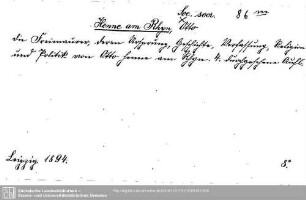 Soc. secr. 86 m
Henne am Rhyn, Otto
Die Freimaurer, deren Ursprung, Geschichte, Verfassung, Religion
und Politik von Otto Henne am Rhyn. 4. durchgesehene Aufl.
Leipzig 1894. 8°
Sächsische Landesbibliothek -
Staats- und Universitätsbibliothek Dresden